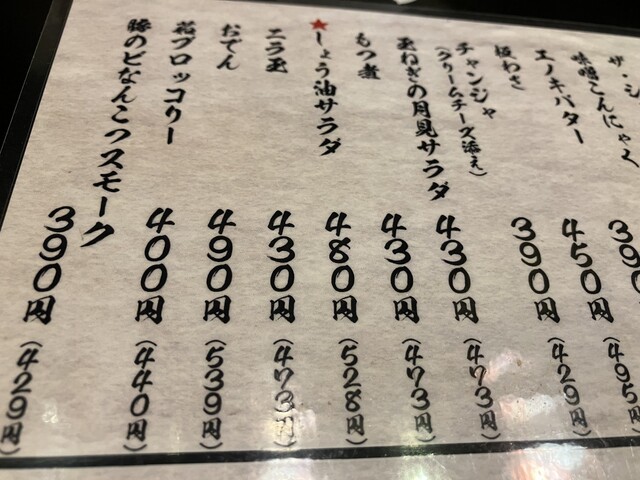 ザ・シ
味噌こんにゃく
390
エノキバター
450円(495円)
板わさ
390円(429円)
チャンジャ
(クリームチーズ添え)
430円(473円)
玉ねぎの月見サラダ
430円(473円)
もつ煮
★しょう油サラダ
480円(528円)
ニラ玉
430円(473円)
おでん
490円(539円)
ブロッコリー
400円(440円)
豚のどなんこつスモーク
390円(429円)